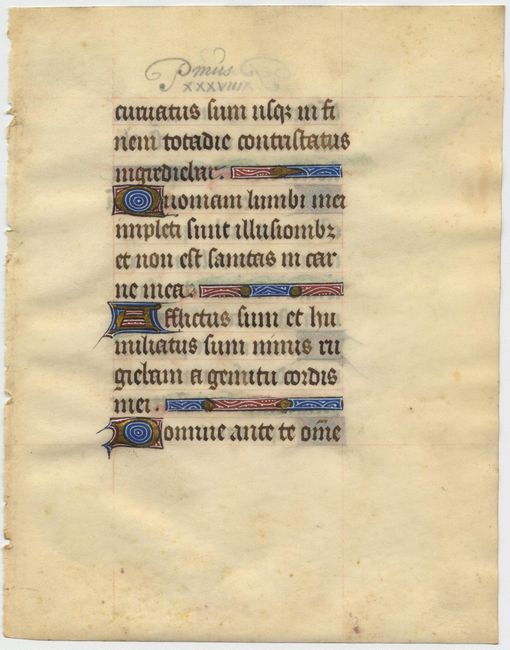 Pmus
XXXVIII
curuatus sum usqz in fi
nem totadie contristatus
ingrediebar.
Quoniam lumbi mei
impleti sunt illusionibz
et non est sanitas in car
ne mea.
Afflictus sum et hu
miliatus sum nimis ru
giebam a gemitu cordis
mei.
Domine ante te om̅e